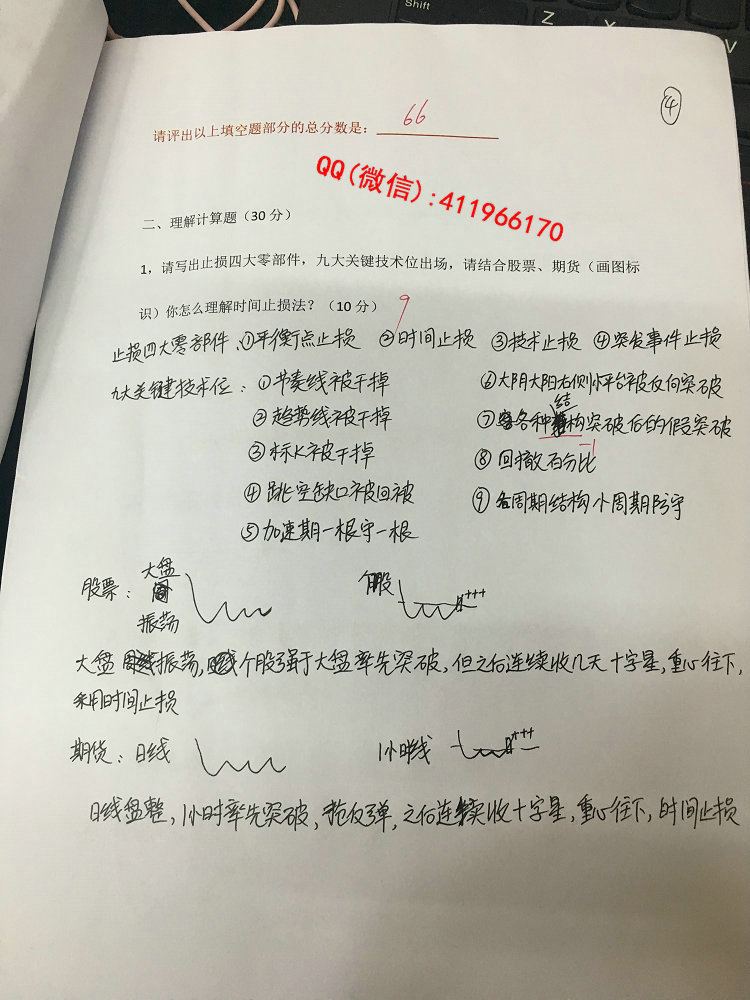 Shift
Z
X
V
④
请评出以上填空题部分的总分数是：66
QQ(微信):411966170
二、理解计算题（30分）
1，请写出止损四大零部件，九大关键技术位出场，请结合股票、期货（画图标
识）你怎么理解时间止损法？（10分）9
止损四大零部件、①平衡点止损 ②时间止损 ③技术止损 ④突发事件止损
九大关键技术位：①节奏线被干掉 ⑥大阴大阳右侧小平台被反向突破
②趋势线被干掉 ⑦各种结构突破后的假突破
-1
③标K被干掉 ⑧回撤百分比
④跳空缺口被回被 ⑨各周期结构小周期防守
⑤加速期一根守一根
股票：大盘振荡 个股 +++
大盘振荡，个股强于大盘率先突破，但之后连续收几天十字星，重心往下，
采用时间止损
期货：日线 1小时线 +++
日线盘整，1小时率先突破，抢反弹，之后连续收十字星，重心往下，时间止损